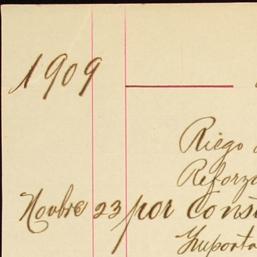 1909
Riego
Reforz
Novbre 23 por Cons
Importa